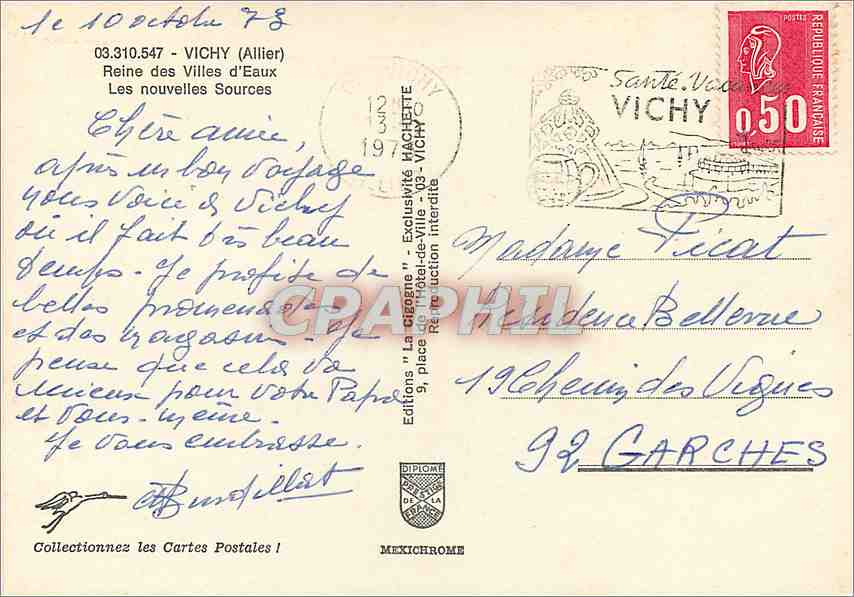 le 10 octobre 73
03.310.547 - VICHY (Allier)
Reine des Villes d'Eaux
Les nouvelles Sources
Chère amie,
après un bon voyage
nous voici à Vichy
où il fait très beau
temps - Je profite de
belles promenades
et des magasins - Je
pense que cela va
mieux pour votre Papa
et vous-même.
Je vous embrasse.
Collectionnez les Cartes Postales !
Editions "La Cigogne" - Exclusivité HACHETTE
9, place de l'Hôtel-de-Ville - 03 - VICHY
Reproduction interdite
DIPLOME
PRESTIGE
DE LA
FRANCE
MEXICHROME
VICHY
12
197
Santé. Vacances
VICHY
POSTES
REPUBLIQUE FRANÇAISE
0,50
Madame Picat
Résidence Bellevue
19 Chemin des Vignes
92 GARCHES
CPARPHIL